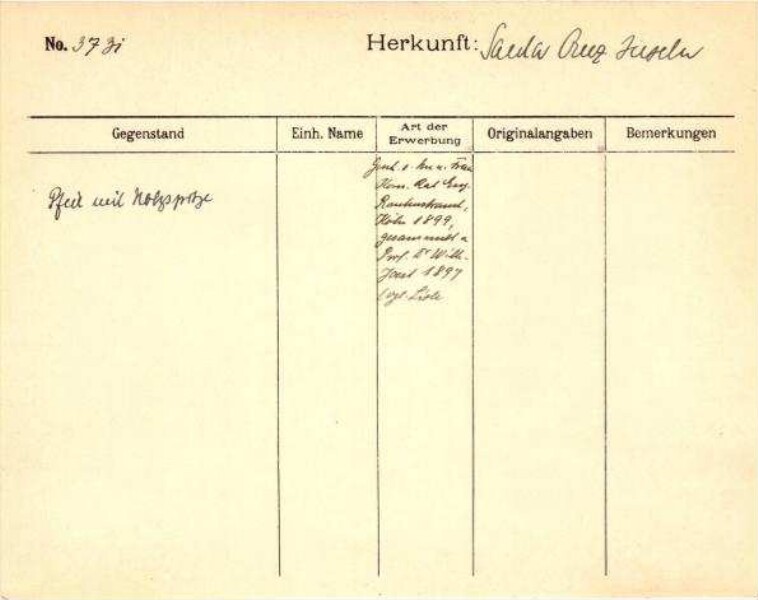 No. 37 3i
Herkunft: Santa Cruz Inseln
Gegenstand
Einh. Name
Art der
Erwerbung
Originalangaben
Bemerkungen
Pfeil mit Holzspitze
Gesch. v. Hrn u. Frau
Kom. Rat Eug.
Rautenstrauch,
Köln 1899,
gesammelt v.
Prof. Dr Wilh.
Joest 1897
(vgl. Liste